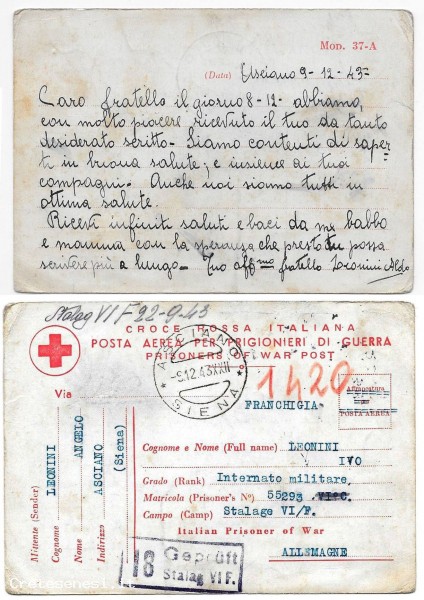 Mod. 37-A
(Data) Asciano 9-12-43-
Caro fratello il giorno 8-12- abbiamo,
con molto piacere ricevuto il tuo da tanto
desiderato scritto - Siamo contenti di saper
ti in buona salute; e insieme ai tuoi
compagni. Anche noi siamo tutti in
ottima salute.
Ricevi infiniti saluti e baci da me babbo
e mamma con la speranza che presto tu possa
scrivere più a lungo - Tuo aff.mo fratello Leonini Aldo
Stalag VI F 22-9-43
CROCE ROSSA ITALIANA
POSTA AEREA PER PRIGIONIERI DI GUERRA
PRISONERS OF WAR POST
ASCIANO
-9.12.43XXII
SIENA
1420
Via
FRANCHIGIA
POSTA AEREA
Mittente (Sender)
Cognome LEONINI
Nome ANGELO
Indirizzo ASCIANO
(Siena)
Cognome e Nome (Full name) LEONINI
IVO
Grado (Rank) Internato militare,
Matricola (Prisoner's No) 55293
Campo (Camp) Stalage VI/F.
Italian Prisoner of War
ALLEMAGNE
18 Geprüft
Stalag VI F.
Cronogenesi.it